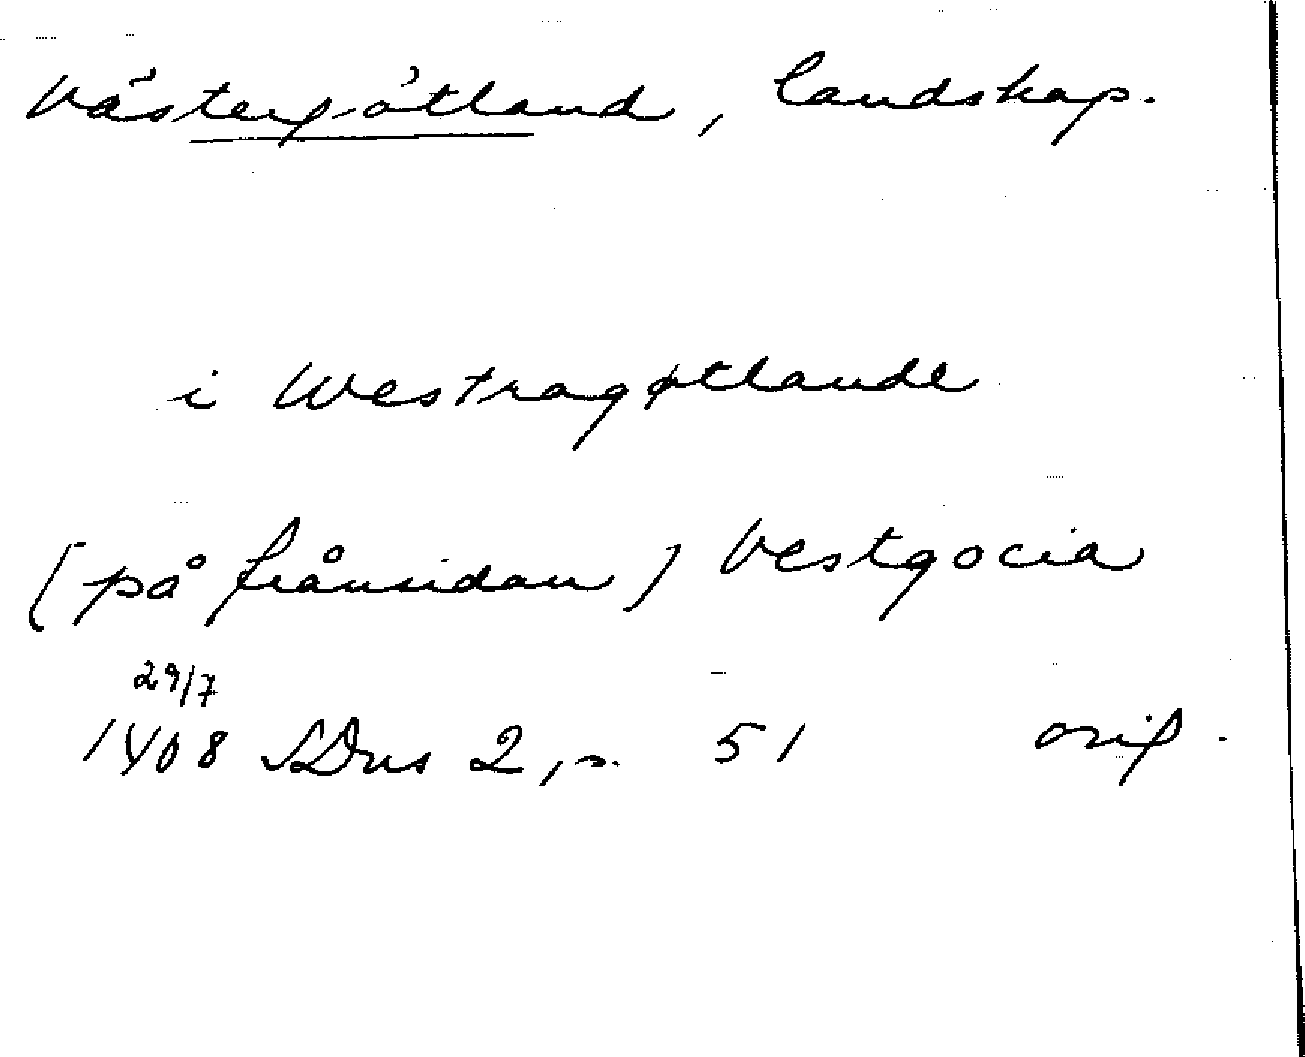 Västergötland, landskap.
i Westragøtlande
(på frånsidan) Vestgocia
29/7
1408 SDns 2, s. 51 orig.